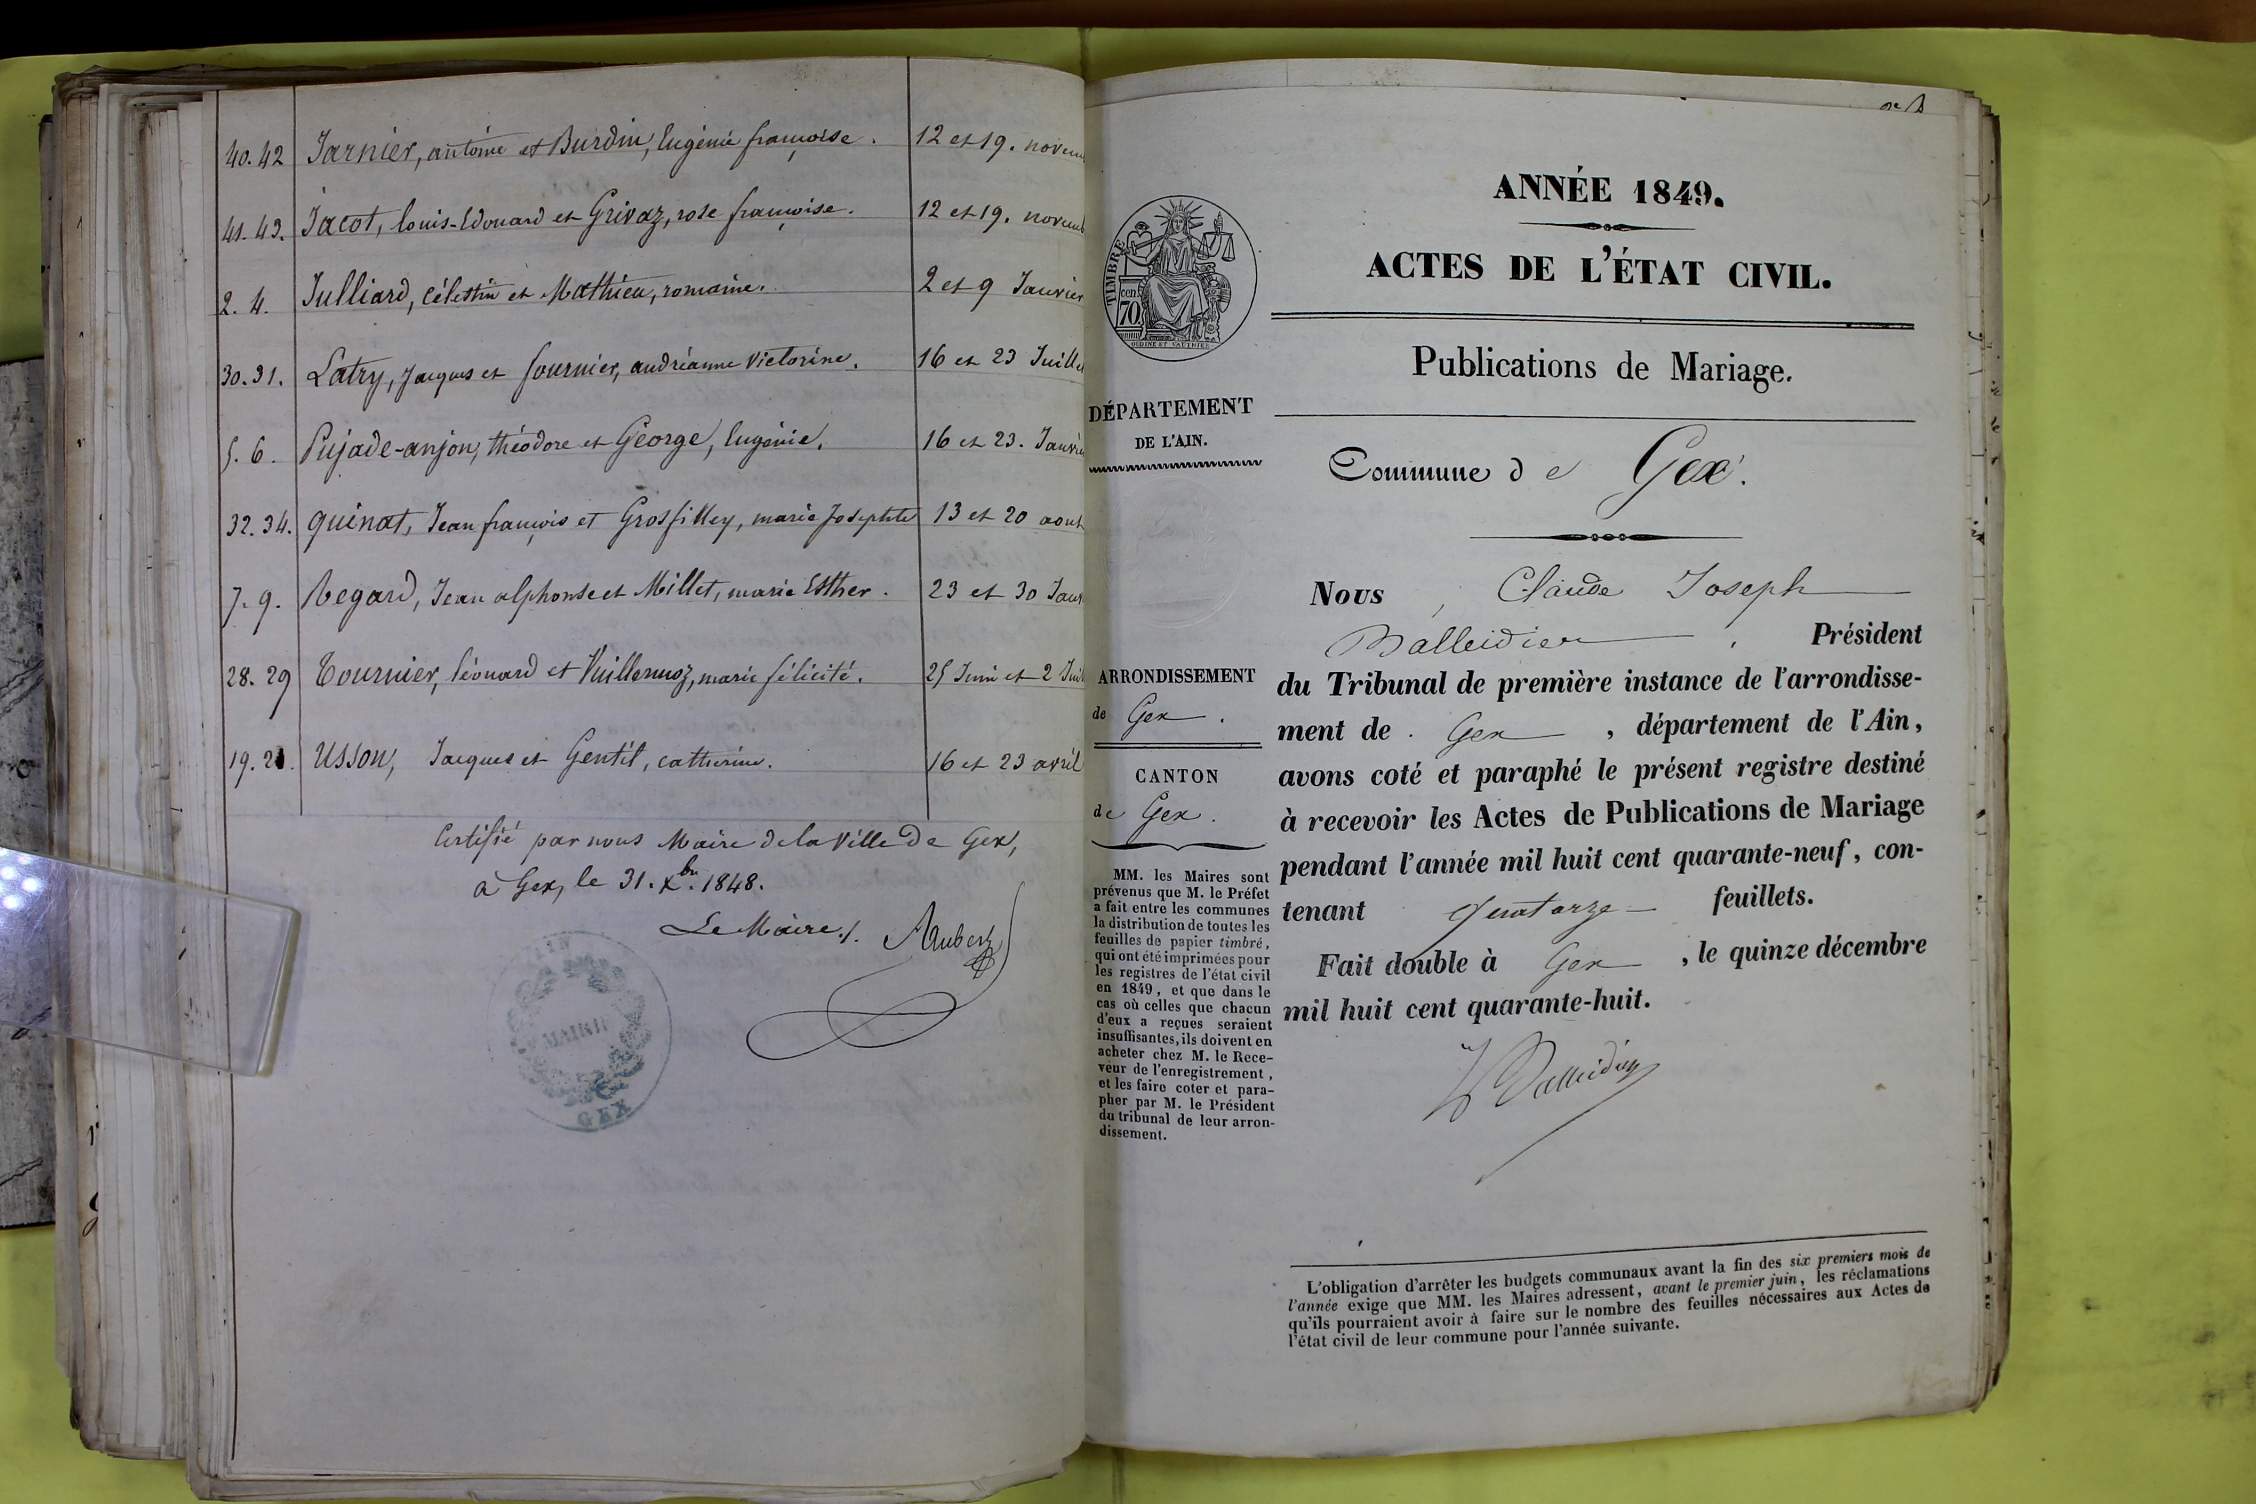 40. 42 Jarnier, antoine et Burdin, Eugénie françoise. 12 et 19. novem
41. 43. Jacot, louis-Edouard et Grivaz, rose françoise. 12 et 19. novemb
2. 4. Julliard, Célestin et Mathieu, romaine. 2 et 9 Janvier
30. 31. Latry, Jacques et fournier, andréanne Victorine. 16 et 23 Juille
5. 6. Pujade-anjou, théodore et George, Eugénie. 16 et 23. Janvie
32. 34. quinat, Jean françois et Grosfilley, marie Josephte 13 et 20 aout
7. 9. Regard, Jean alphonse et Millet, marie Esther. 23 et 30 Janv
28. 29 Tournier, léonard et Vuillermoz, marie félicité. 25 Juin et 2 Juil
19. 21. Usson, Jacques et Gentil, catherine. 16 et 23 avril
Certifié par nous Maire de la Ville de Gex,
à Gex, le 31. Xbre. 1848.
Le Maire,
MAIRIE
GEX
ANNÉE 1849.
ACTES DE L'ÉTAT CIVIL.
Publications de Mariage.
TIMBRE
cent
70
DÉPARTEMENT
DE L'AIN.
ARRONDISSEMENT
de Gex.
CANTON
de Gex.
MM. les Maires sont
prévenus que M. le Préfet
a fait entre les communes
la distribution de toutes les
feuilles de papier timbré,
qui ont été imprimées pour
les registres de l'état civil
en 1849, et que dans le
cas où celles que chacun
d'eux a reçues seraient
insuffisantes, ils doivent en
acheter chez M. le Rece-
veur de l'enregistrement,
et les faire coter et para-
pher par M. le Président
du tribunal de leur arron-
dissement.
Commune de Gex.
Nous, Claude Joseph
Balleidier, Président
du Tribunal de première instance de l'arrondisse-
ment de Gex, département de l'Ain,
avons coté et paraphé le présent registre destiné
à recevoir les Actes de Publications de Mariage
pendant l'année mil huit cent quarante-neuf, con-
tenant quatorze feuillets.
Fait double à Gex, le quinze décembre
mil huit cent quarante-huit.
Balleidier
L'obligation d'arrêter les budgets communaux avant la fin des six premiers mois de
l'année exige que MM. les Maires adressent, avant le premier juin, les réclamations
qu'ils pourraient avoir à faire sur le nombre des feuilles nécessaires aux Actes de
l'état civil de leur commune pour l'année suivante.